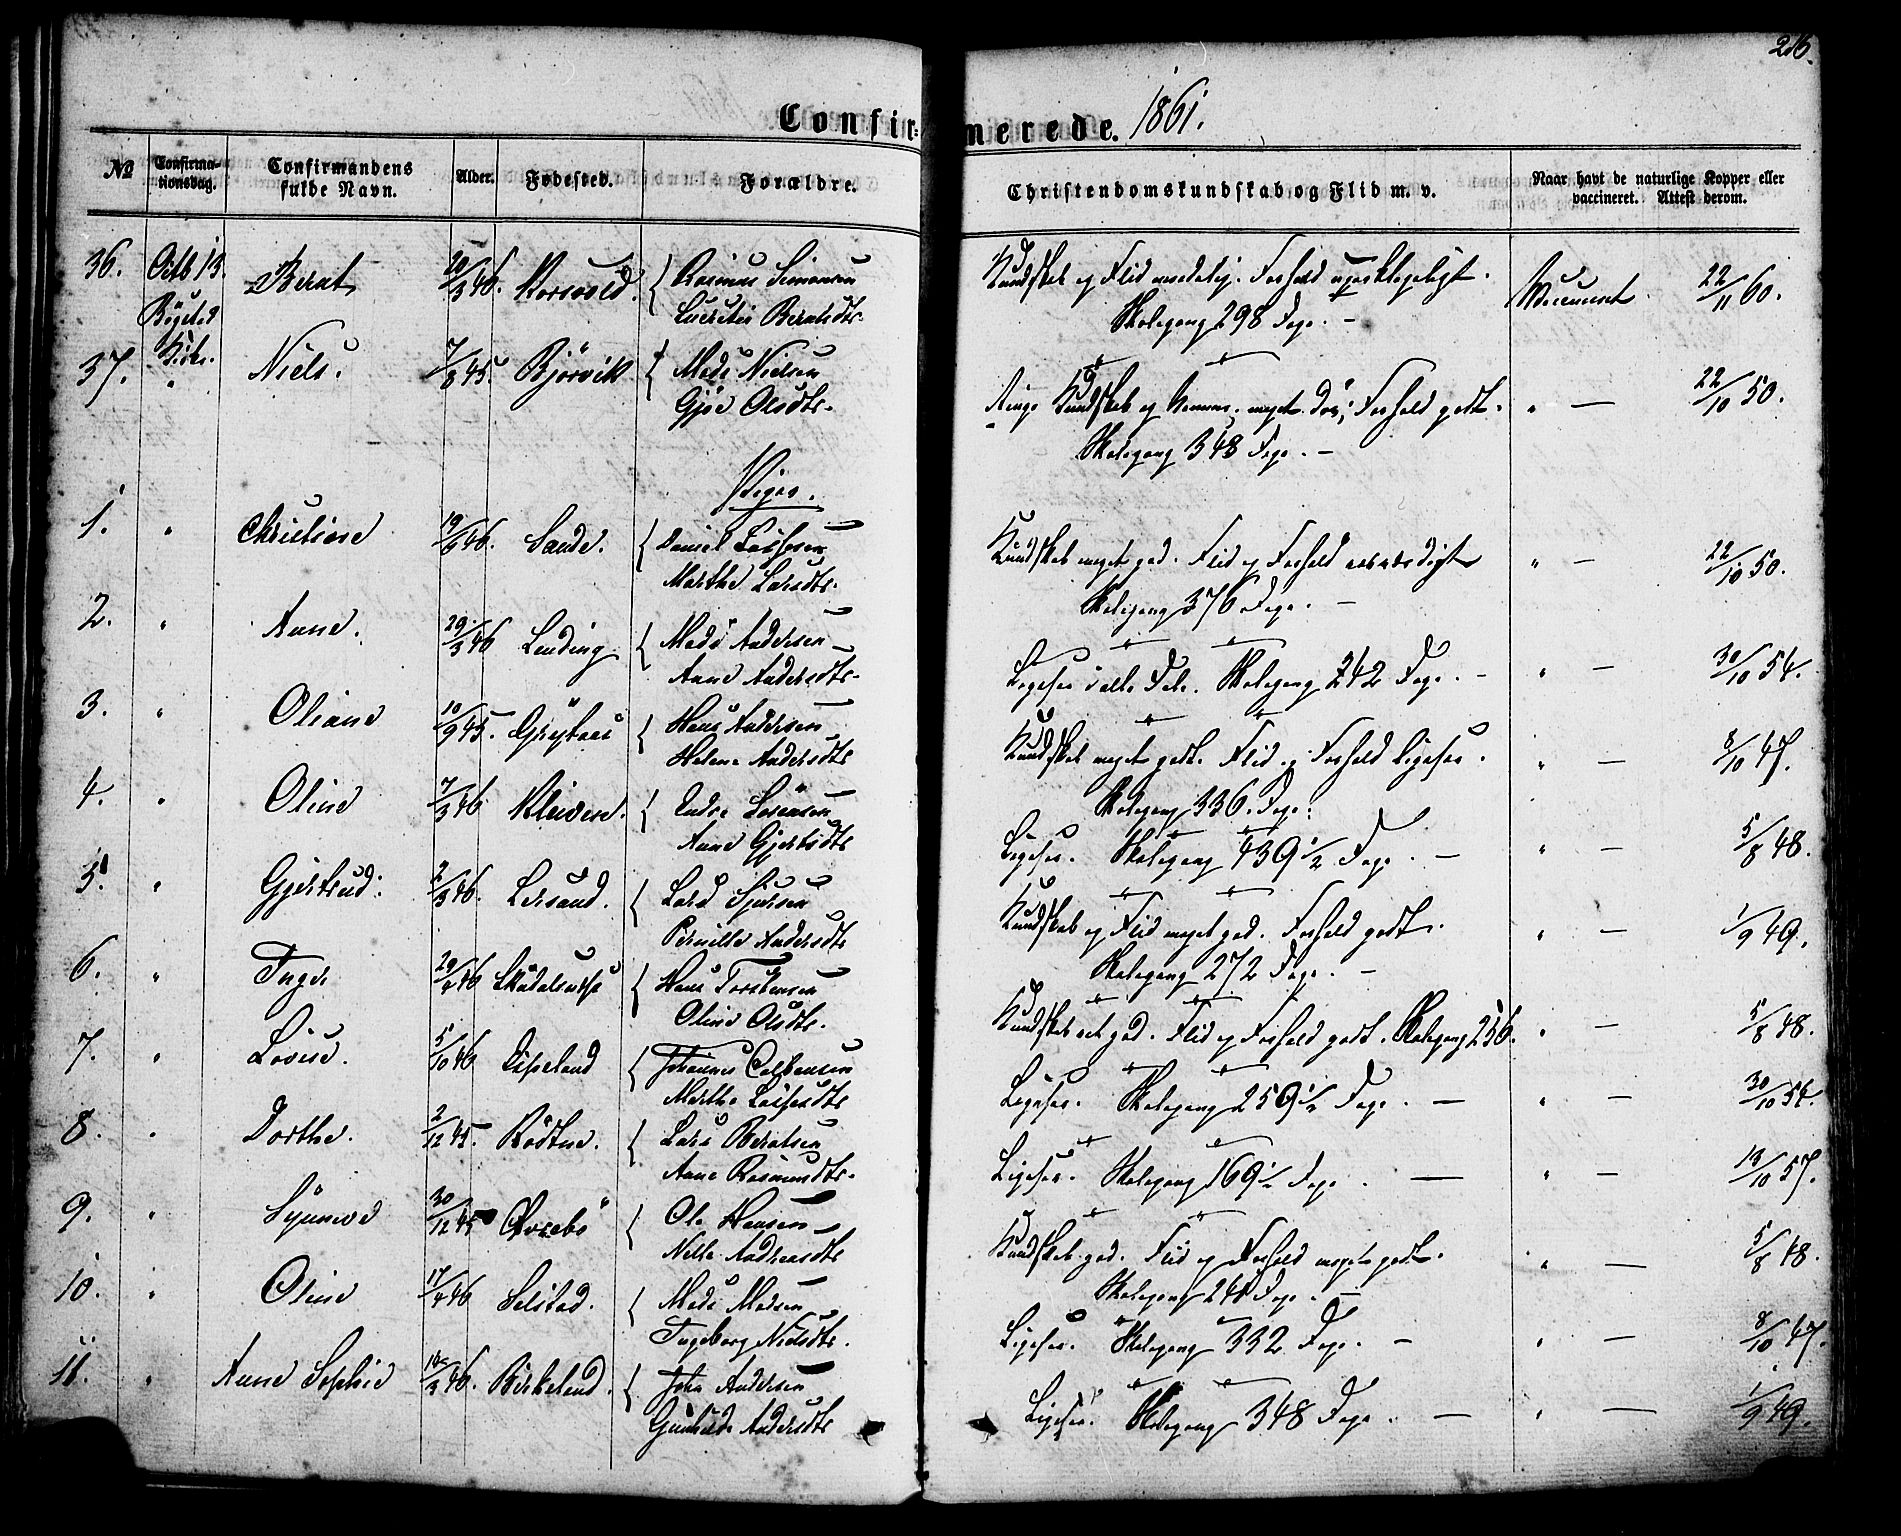 216.
Confirmerede. 1861.
No Confirmationsdag. Confirmandens fulde Navn. Alder. Fødested. Forældre. Christendomskundskab og Flid m. v. Naar havt de naturlige Kopper eller vaccineret. Attest derom.
36. Octb 13. Bernt 20/3 46. { Rasmus Simonsen Kundskab og Flid Forhold
Kirke. Berntsdtr. Skolegang 298 Dage. – Vaccineret 22/11 60.
37. " Niels. 7/8 45. Bjørvik { Mads Nielsen
Gjøe Olsdtr. Ringe Kundskab og meget Forhold godt. " — 22/10 50.
Skolegang 348 Dage. –
Piger.
1. " Christiane 19/6 46. Sande. { Daniel
Marthe Larsdtr. Kundskab meget god. Flid og Forhold " — 22/10 50.
Skolegang 376 Dage. –
2. " Anne. 29/3 46 Lending { Mads Andersen
Anne Andersdtr. Ligesaa i alle Dele. Skolegang 242 Dage. – " — 30/10 54.
3. " Oliane 10/9 45. { Hans Andersen
Helene Andersdtr Kundskab meget godt. Flid og Forhold ligesaa. " — 8/10 47.
Skolegang 336 Dage.
4. " Oline 7/3 46 { Endre Sørensen
Anne Gjertsdtr Ligesaa. Skolegang 439 1/2 Dage. – " — 5/8 48.
5. " Gjertrud. 2/3 46. Lersund. { Lars Sjursen
Pernille Andersdtr Kundskab og Flid meget god. Forhold godt. " — 1/9 49.
Skolegang 272 Dage. –
6. " Inger 29/4 46 { Hans Torstensen
Oline Olsdtr. Kundskab ret god. Flid og Forhold godt. Skolegang 256. " — 5/8 48.
7. " Lovise. 5/10 46 Espeland { Johannes
Marthe Ligesaa. Skolegang 259 1/2 Dage. — " — 30/10 54.
8. " Dorthe. 2/12 45. { Lars Berntsen
Anne Rasmusdtr. Ligesaa. Skolegang 169 1/2 Dage. — " — 13/10 57.
9. " Synneve 30/12 45 Øvrebø { Ole Hansen
Nille Andreasdtr Kundskab god. Flid og Forhold meget godt. " — 5/8 48.
Skolegang 248 Dage. –
10. " Oline 17/4 46 Solstad. { Mads Madsen
Ingeborg Nielsdtr. Ligesaa. Skolegang 332 Dage. – " — 8/10 47.
11. " Anne Sophie 16/3 46. Birkeland. { John Andersen
Gunhilde Andersdtr Ligesaa. Skolegang 348 Dage. — " — 1/9 49.